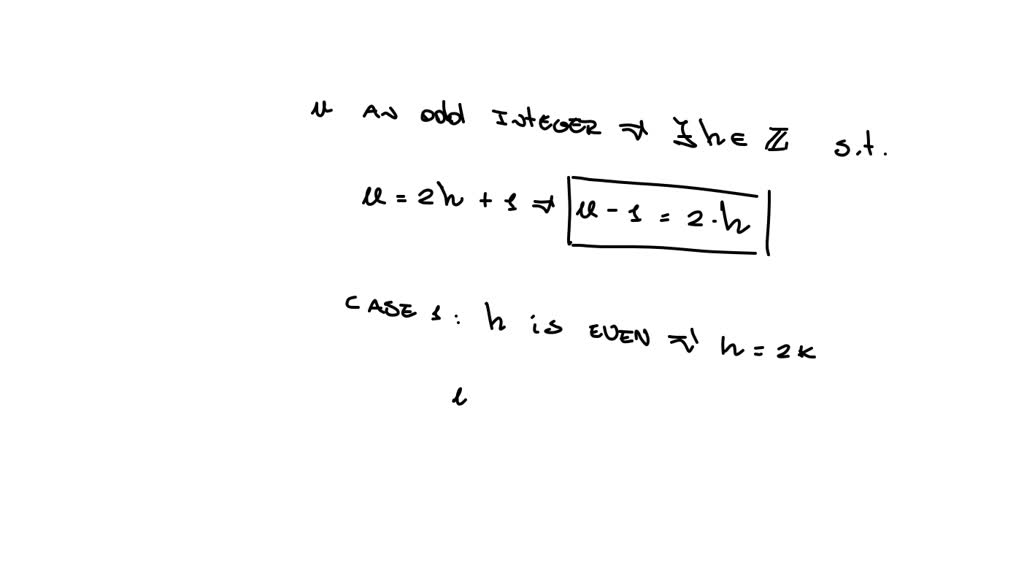 n AN odd INTEGER ⇒ ∃ h ∈ ℤ s.t.
n = 2h + 1 ⇒ n - 1 = 2 · h
CASE 1: h is EVEN ⇒ h = 2k